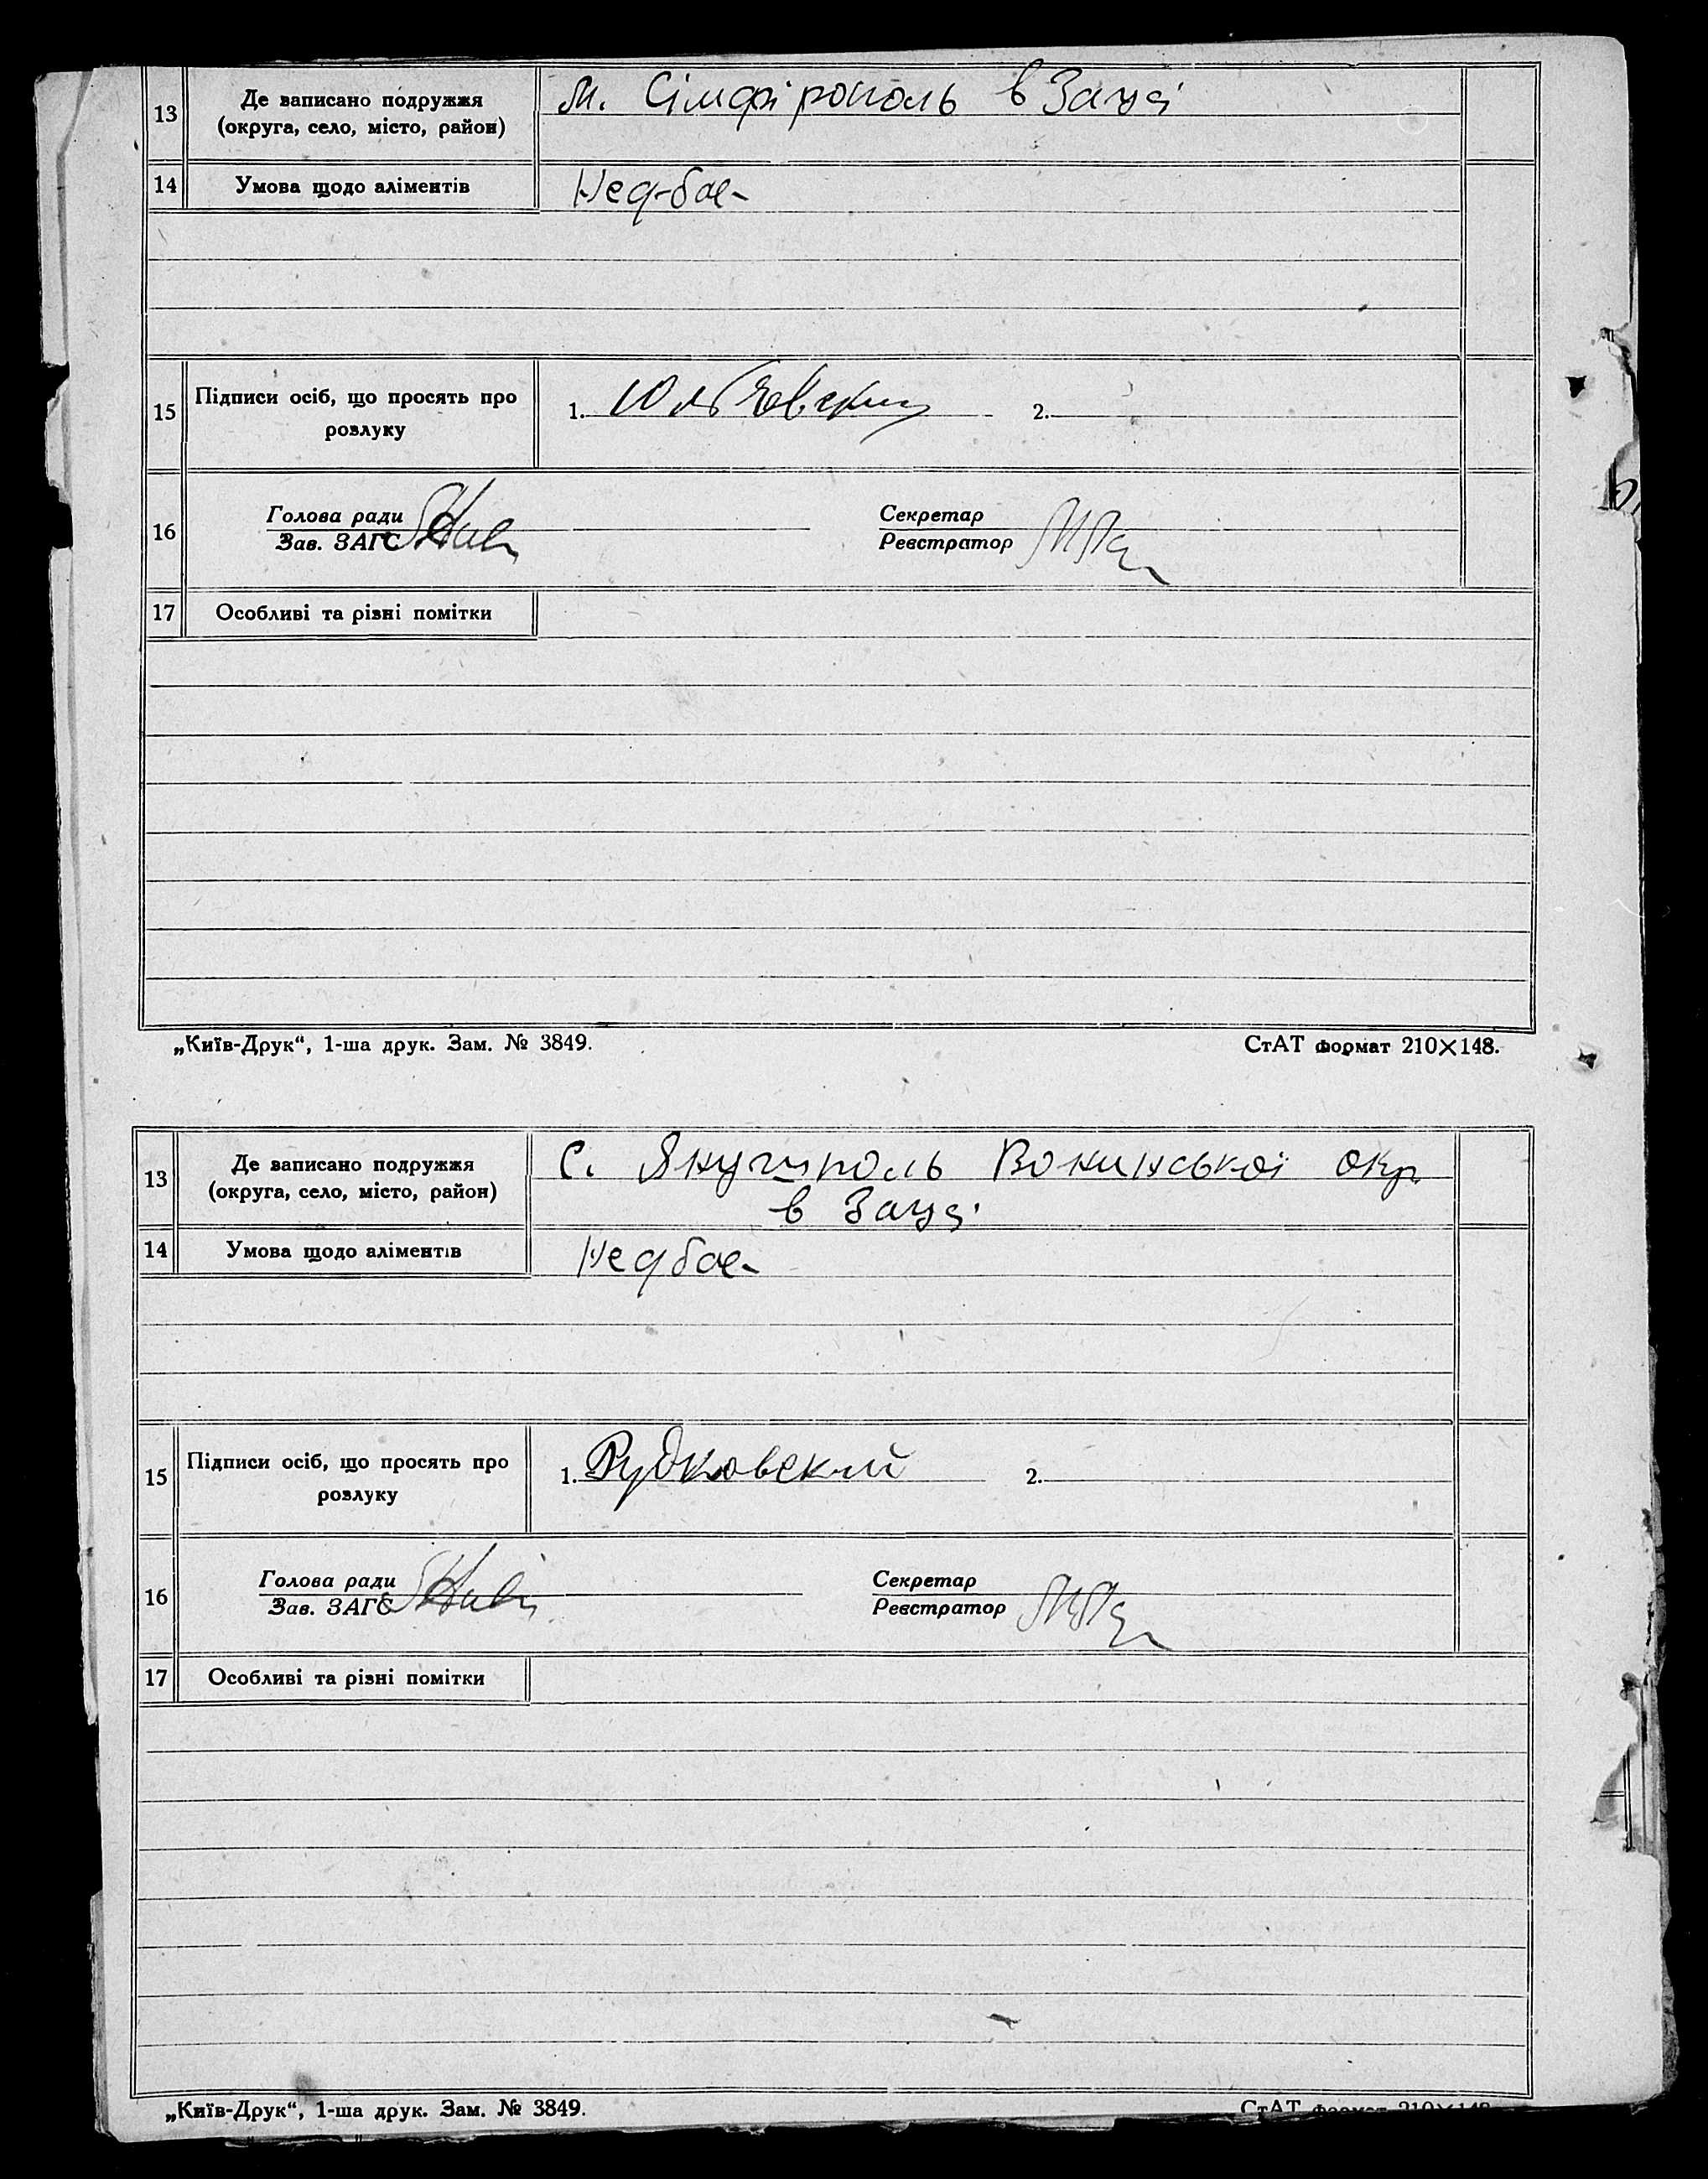 13 Де записано подружжя м. Сімфірополь в Загсі
(округа, село, місто, район)
14 Умова щодо аліментів
15 Підписи осіб, що просять про
розлуку
1. 2.
Голова ради Секретар
16 Зав. ЗАГС Реєстратор
17 Особливі та різні помітки
„Київ-Друк“, 1-ша друк. Зам. № 3849. СтАТ формат 210×148.
13 Де записано подружжя с. Янушполь окр
(округа, село, місто, район) в Загсі
14 Умова щодо аліментів
15 Підписи осіб, що просять про
розлуку
1. Рудковский 2.
Голова ради Секретар
16 Зав. ЗАГС Реєстратор
17 Особливі та різні помітки
„Київ-Друк“, 1-ша друк. Зам. № 3849. СтАТ формат 210×148.